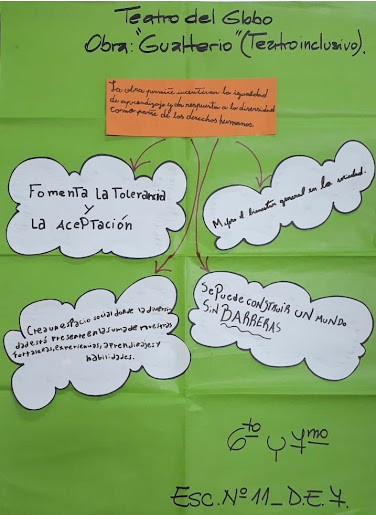 Teatro del Globo
Obra: "Gualterio" (Teatro inclusivo).
La obra permite incentivar la igualdad
de aprendizaje y da respuesta a la diversidad
como parte de los derechos humanos.
Fomenta La Tolerancia
y
La Aceptación
el bienestar general en la sociedad.
Crea un espacio social donde la diversi
dad está presente en la suma de nuestras
fortalezas, experiencias, aprendizajes y
habilidades.
Se Puede CONSTRUIR UN MUNDO
Sin BARRERAS
6to y 7mo
Esc. Nº 11_D.E 7.